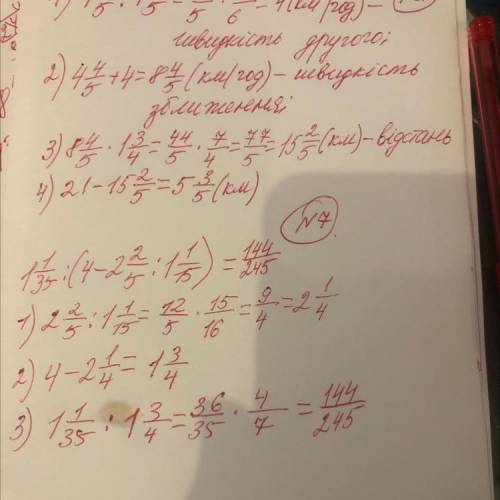 швидкість другого;
2) 4 4/5 + 4 = 8 4/5 (км/год) – швидкість
зближення;
3) 8 4/5 · 1 3/4 = 44/5 · 7/4 = 77/5 = 15 2/5 (км) – відстань
4) 21 – 15 2/5 = 5 3/5 (км)
N7
1 1/35 : (4 – 2 2/5 : 1 1/15) = 144/245
1) 2 2/5 : 1 1/15 = 12/5 · 15/16 = 9/4 = 2 1/4
2) 4 – 2 1/4 = 1 3/4
3) 1 1/35 : 1 3/4 = 36/35 · 4/7 = 144/245